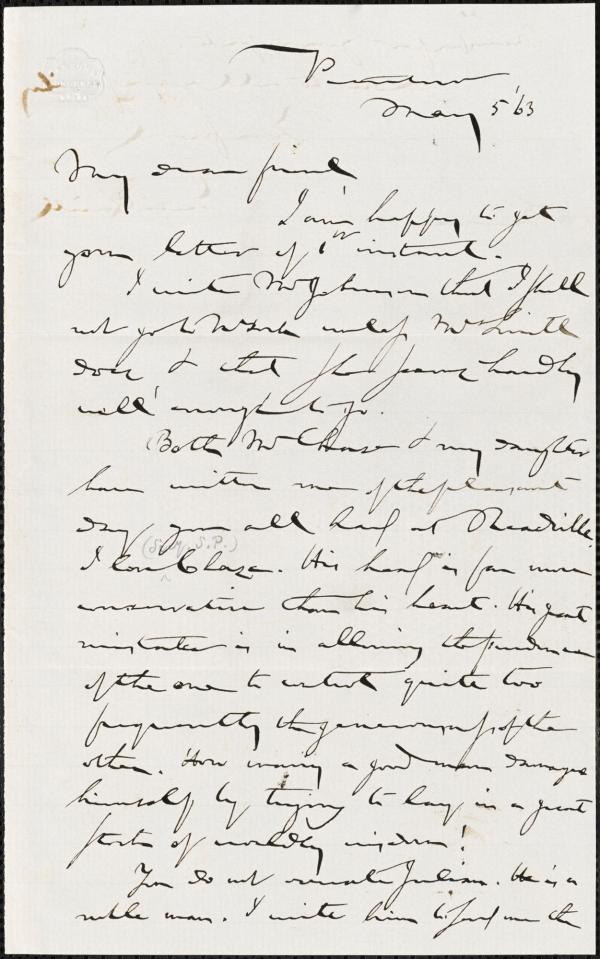 Peterboro
May 5 '63
My dear friend
I am happy to get
your letter of 1st instant.
I write Mr Johnson that I shall
not go to N. York unless Mrs Smith
does & that she seems hardly
well enough to go.
Both Mr Chase & my daughter
have written me of the pleasant
day you all had at Readville.
(Secy. S.P.)
I love Chase. His head is far more
conservative than his heart. His great
mistake is in allowing the prudence
of the one to control quite too
frequently the generousness of the
other. How many a good man damages
himself by trying to lay in a great
stock of worldly wisdom!
You do not overrate Julian. He is a
noble man. I write him to send me the